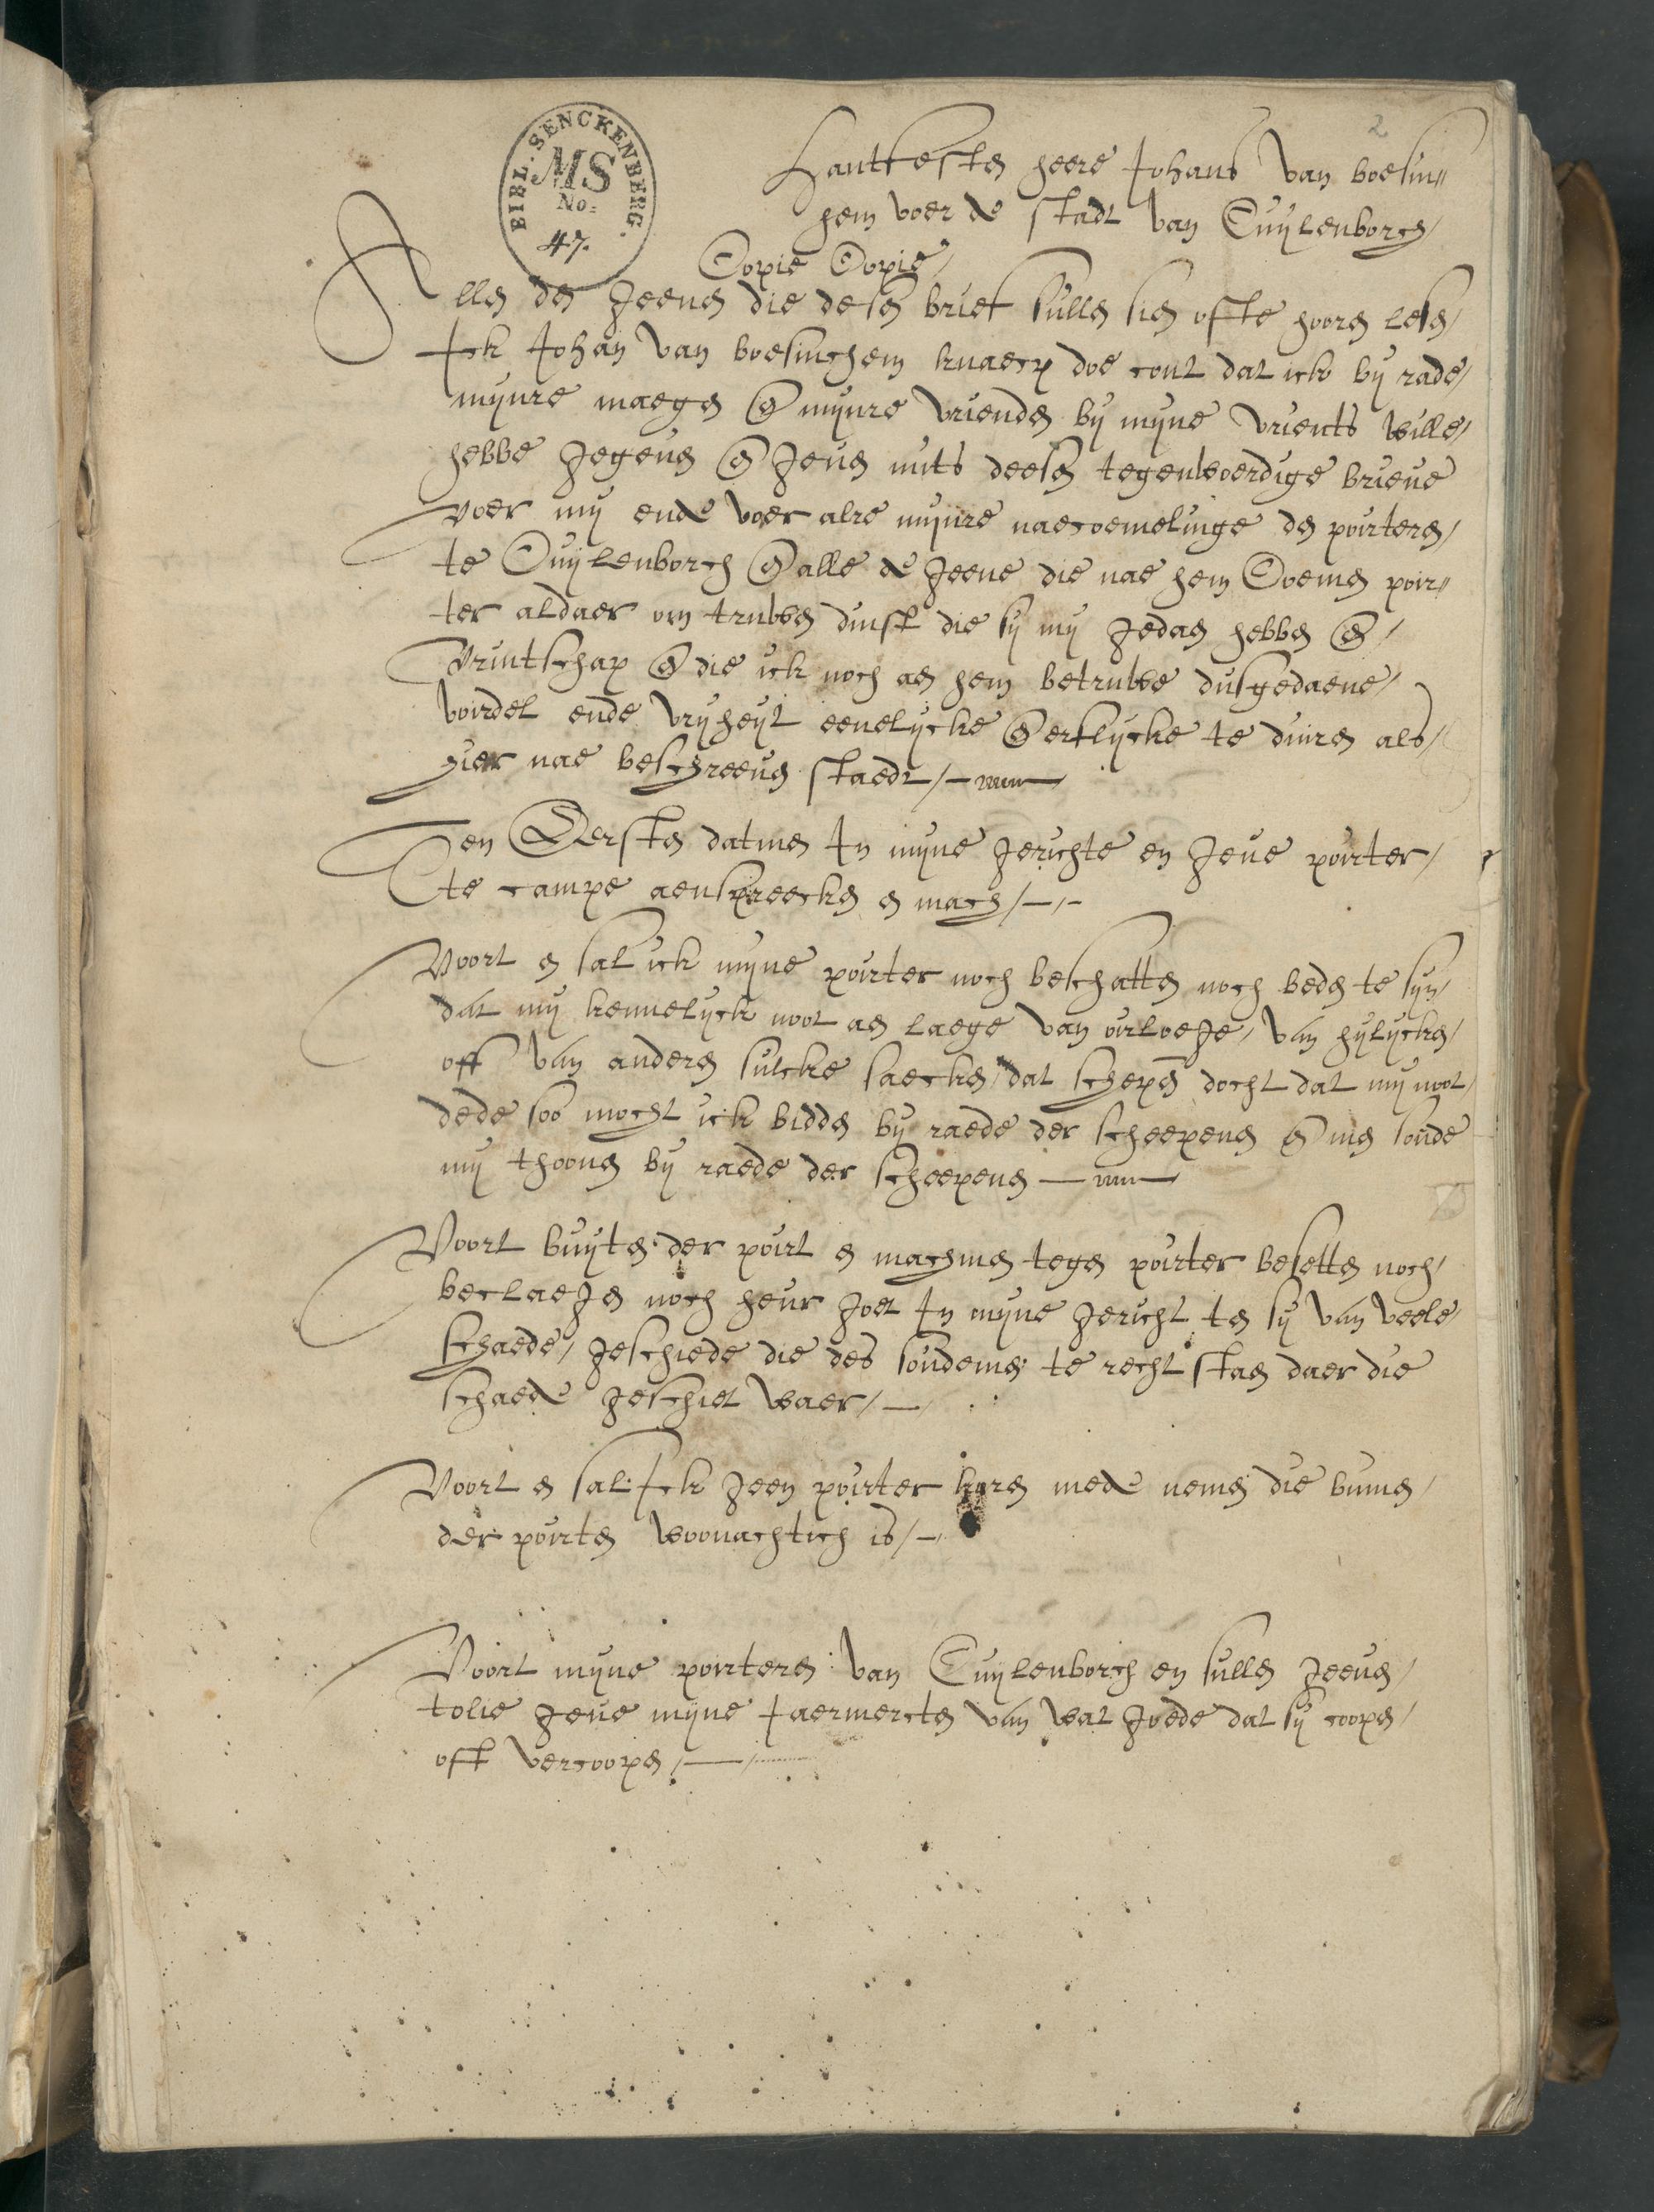 2
BIBL. SENCKENBERG.
MS
No:
47.
Hantvesten heere Johans van boesin„
hem voer de stadt van Cuylenborch /
Copie Copie /
Allen den geenen die desen brief sullen sien ofte hooren lesen /
Ick Johan van boesinchem knaep doe cont dat ick by rade /
mynre maegen en mynre vrienden by myne vrients wille /
hebbe gegeven en geven mits deesen tegenwoerdige brieve
voer my ende voer alre mynre naecoemelinge den poirteren /
te Cuylenborch en alle de geene die nae hem Coemen poir„
ter aldaer om truwen dinst die sy my gedaen hebben en /
Vrintschap en die ick noch aen hem betruwe dusgedaene /
voirdel ende vryheyt eenelycke en erflycke te duiren als /
hier nae beschreeven staedt /
Ten Eersten datmen In myne gerichte en geve poirter /
te campe aenspreecken en mach /
Voort en sal ick myne poirter noch beschatten noch beden te syn /
dat my kennelyck noot aen laege van oirloege / van hylycken /
off van anderen sulcke saecken / dat schepen docht dat my noot /
dede soo mocht ick bidden by raede der scheepenen en men soude
my thoonen by raede der scheepenen
Voort buyten der poirt en machmen tegen poirter besetten noch /
beclaegen noch heur goet In myne gericht ten sy van veele /
schaede / geschiede die des soudemen te recht staen daer die
schaede geschiet waer /
Voort en sal Ick geen poirter koren mede nemen die binnen /
der poirten woonachtich is /
Voort myne poirteren van Cuylenborch en sullen geenen /
tolie geve myne Jaermercten van wat goede dat sy coopen /
off vercoopen /